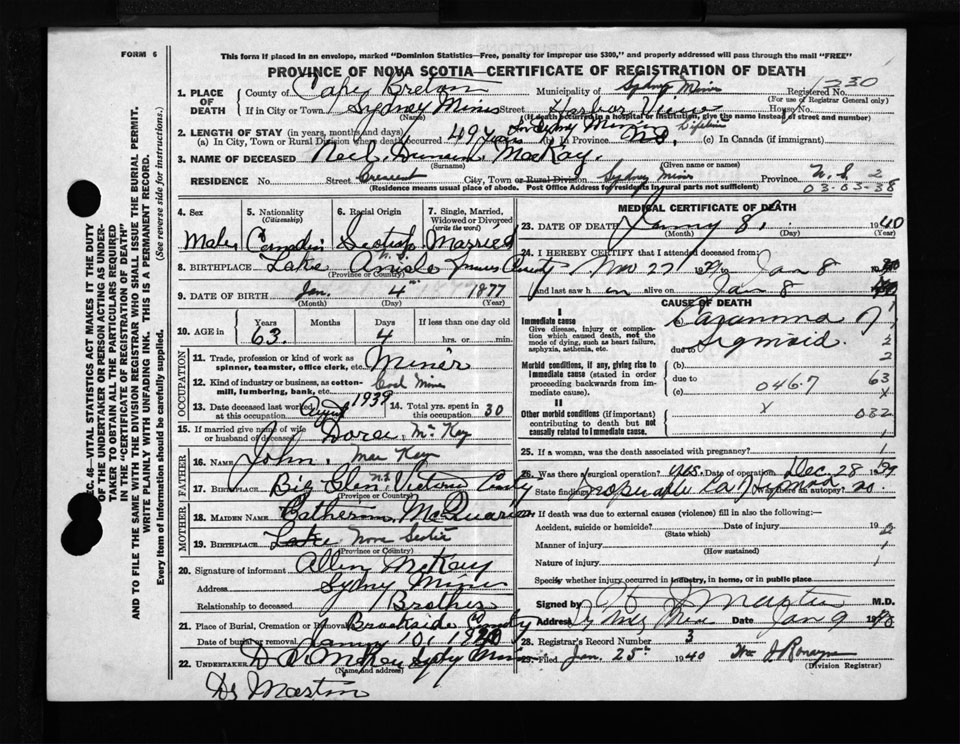 FORM 6
This form if placed in an envelope, marked "Dominion Statistics—Free, penalty for improper use $300," and properly addressed will pass through the mail "FREE"
PROVINCE OF NOVA SCOTIA—CERTIFICATE OF REGISTRATION OF DEATH
1. PLACE OF DEATH
County of Cape Breton Municipality of Sydney Mines Registered No. 1230
(For use of Registrar General only)
If in City or Town Sydney Mines Street Harbor View House No.
(Name) (If death occurred in a hospital or institution, give the name instead of street and number)
2. LENGTH OF STAY (in years, months and days)
(a) In City, Town or Rural Division where death occurred 49 years (b) In Province (c) In Canada (if immigrant)
3. NAME OF DECEASED Neil Duncan MacKay.
(Surname) (Given name or names)
RESIDENCE No. Street Crescent City, Town or Rural Division Sydney Mines Province N.S. 2
(Residence means usual place of abode. Post Office Address for residents in rural parts not sufficient) 03-03-38
4. Sex
Male
5. Nationality
(Citizenship)
6. Racial Origin
Scotish
7. Single, Married, Widowed or Divorced
(write the word)
Married
8. BIRTHPLACE Lake Ainslie N.S.
(Province or Country)
9. DATE OF BIRTH Jan. 4 1877
(Month) (Day) (Year)
10. AGE in
Years Months Days If less than one day old
63. 4 hrs. or min.
OCCUPATION
11. Trade, profession or kind of work as spinner, teamster, office clerk, etc. Miner
12. Kind of industry or business, as cotton-mill, lumbering, bank, etc. Coal Mine
13. Date deceased last worked at this occupation 1939
14. Total yrs. spent in this occupation 30
15. If married give name of wife or husband of deceased McKay
FATHER
16. NAME John MacKay
17. BIRTHPLACE Big Glen N.S. Victoria County
(Province or Country)
MOTHER
18. MAIDEN NAME Catherine McQuarrie
19. BIRTHPLACE Lake Nova Scotia
(Province or Country)
20. Signature of informant Allen McKay
Address Sydney Mines
Relationship to deceased Brother
21. Place of Burial, Cremation or Removal Brookside
Date of burial or removal 10, 1940
22. UNDERTAKER McKay Sydney Mines
(Name and address)
Dr Martin
MEDICAL CERTIFICATE OF DEATH
23. DATE OF DEATH 8, 1940
(Month) (Day) (Year)
24. I HEREBY CERTIFY that I attended deceased from:
Nov 27 1939 to Jan 8 1940
and last saw him alive on Jan 8 1940
CAUSE OF DEATH
I
Immediate cause
Give disease, injury or complication which caused death, not the mode of dying, such as heart failure, asphyxia, asthenia, etc.
(a) Carcinoma of
due to Sigmoid.
Morbid conditions, if any, giving rise to immediate cause (stated in order proceeding backwards from immediate cause).
(b)
due to
(c)
046.7 63
II
Other morbid conditions (if important) contributing to death but not causally related to immediate cause.
X 032
25. If a woman, was the death associated with pregnancy?
26. Was there a surgical operation? Yes. Date of operation Dec. 28 1939
State findings Inoperable Was there an autopsy? no
27. If death was due to external causes (violence) fill in also the following:—
Accident, suicide or homicide? Date of injury 19
(State which)
Manner of injury
(How sustained)
Nature of injury
Specify whether injury occurred in industry, in home, or in public place
Signed by M.D.
Address Jan 9 1940
28. Registrar's Record Number 3
29. Filed Jan. 25th 1940
(Division Registrar)
SEC. 46—VITAL STATISTICS ACT MAKES IT THE DUTY OF THE UNDERTAKER OR PERSON ACTING AS UNDERTAKER TO OBTAIN ALL THE PARTICULARS REQUIRED IN THE "CERTIFICATE OF REGISTRATION OF DEATH" AND TO FILE THE SAME WITH THE DIVISION REGISTRAR WHO SHALL ISSUE THE BURIAL PERMIT.
WRITE PLAINLY WITH UNFADING INK. THIS IS A PERMANENT RECORD.
Every item of information should be carefully supplied. (See reverse side for instructions.)